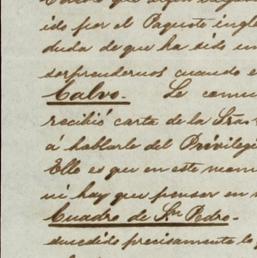 ido por el Paquete ingl
duda de que ha sido un
sorprendernos cuando e
Calvo. Le comu
recibió carta de la Sra
á hablarle del Privilegi
Ello es que en este mom
ni hay que pensar en
Cuadro de Sn Pedro.
sucedido precisamente lo